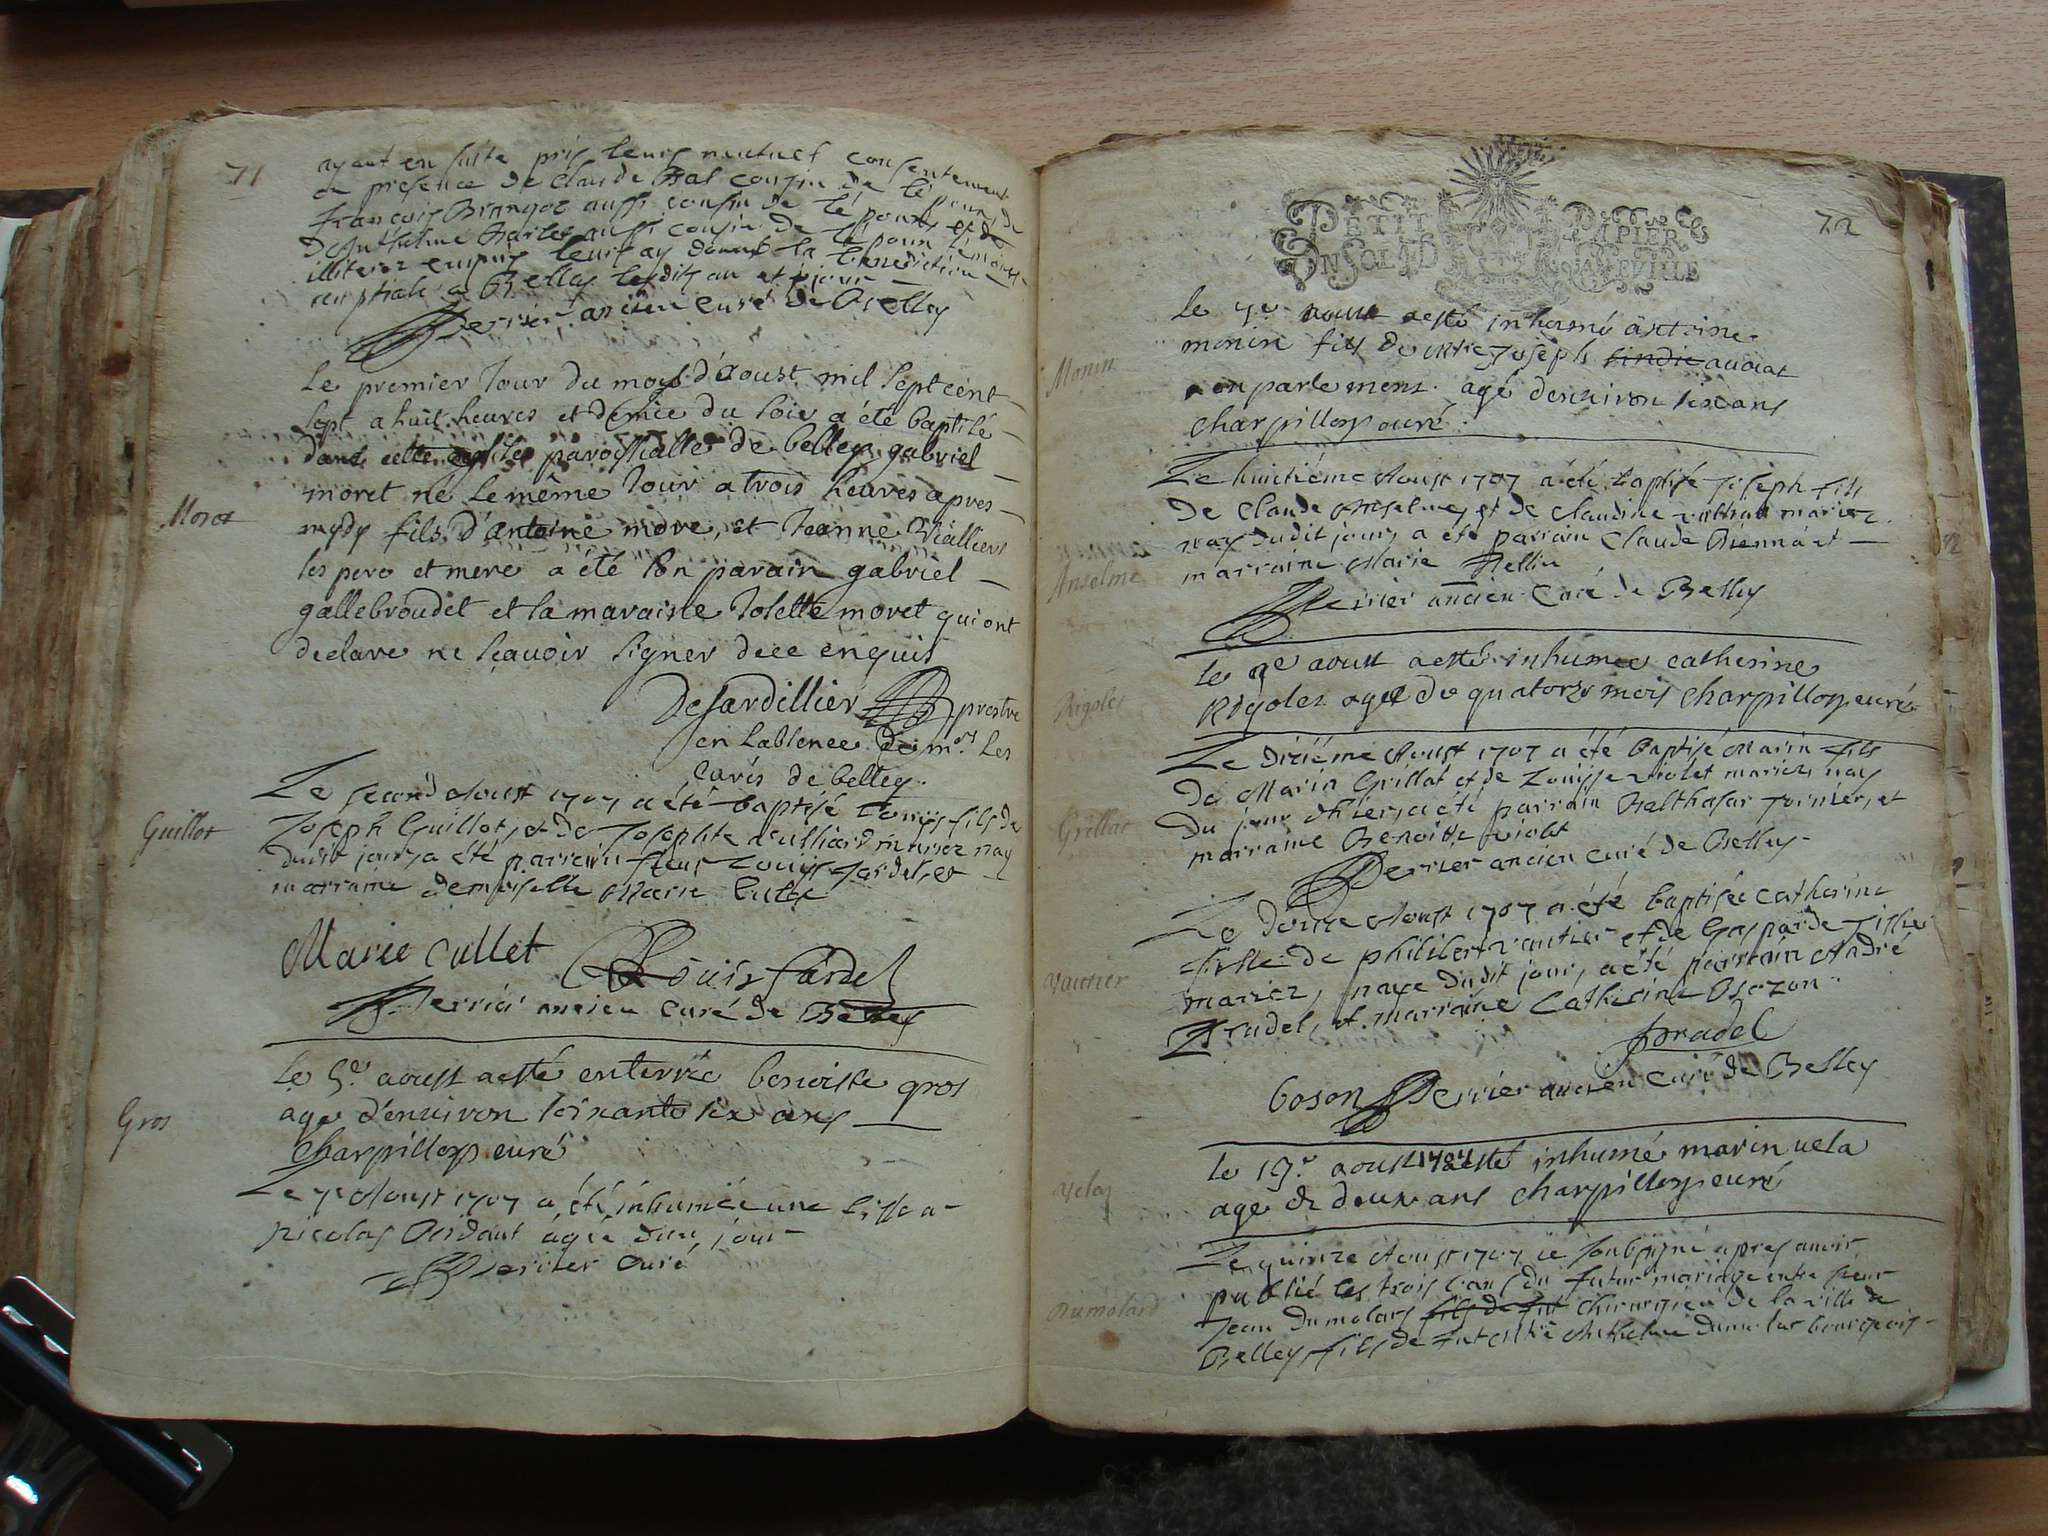 71
ayant en suite pris leurs mutuel consentement
en presence de Claude Bal cousin de
françois aussi cousin de
aussi cousin de
enquis leur ay donné la benediction
nuptiale a Belley lesdits an et jour
Perrier ancien curé de Belley
le premier Jour du moys d'aoust mil sept cent
sept a huit heures et demie du soir a été baptisé
dans cette eglise paroissialle de belley gabriel
Moret
moret né le même Jour a trois heures apres
mydy fils d'antoine more, et Jeanne
ses pere et mere a été son parain gabriel
gallebroudet et la maraine Josette moret qui ont
declare ne sçavoir signer de ce enquis
Desardillier prestre
en l'absence de mrs les
curés de belley.
Le second Aoust 1707 a été baptisé Louis fils de
Guillot
Joseph Guillot, et de Josephte mariez nay
dudit jour, a été parrain sieur Louis Jardel, et
marraine demoiselle Marie
Marie Cullet Louis Jardel
Perrier ancien curé de Belley
le 5e aoust a esté enterrée benoiste gros
Gros
age d'environ soixante six ans
Charpillon curé
Le 7e Aoust 1707 a été inhumée une fille a
nicolas agée d'un jour
Perrier Curé
72
PETIT PAPIER
UN SOL IIII D LA FEVILLE
le 7e aoust a esté inhumé antoine
Monin
monin fils de Mtre Joseph sindic avocat
on parlement. agé d'environ six ans
Charpillon curé
Le huitiéme Aoust 1707 a été baptisé Joseph fils
de Claude Anselme, et de Claudine mariez
Anselme
nay dudit jour, a été parrain Claude
marraine Marie
Perrier ancien Curé de Belley
le 9e aoust a esté inhumée catherine
Rigolet
Rigolet agée de quatorze mois Charpillon curé
Le diziéme Aoust 1707 a été baptisé Marin fils
de Marin Grillat et de Louisse violet mariez nay
Grillat
du jour d'hier, a été parrain Balthasar et
marraine Benoitte violet
Perrier ancien curé de Belley
Le douze Aoust 1707 a été baptisée Catherine
fille de philibert vautier et de Gasparde
Vautier
mariez, naye dudit jour, a été parrain André
Pradel, et marraine Catherine Bozon
pradel
boson Perrier ancien Curé de Belley
le 13e aoust 1707 a esté inhumé marin vela
Vela
age de deux ans Charpillon curé
Le quinze Aoust 1707, je soubsigné apres avoir
publié les trois bans du futur mariage entre sieur
Dumolard
Jean Dumolard fils de fut chirurgien de la ville de
Belley, fils de fut Mtre Anthelme bourgeois